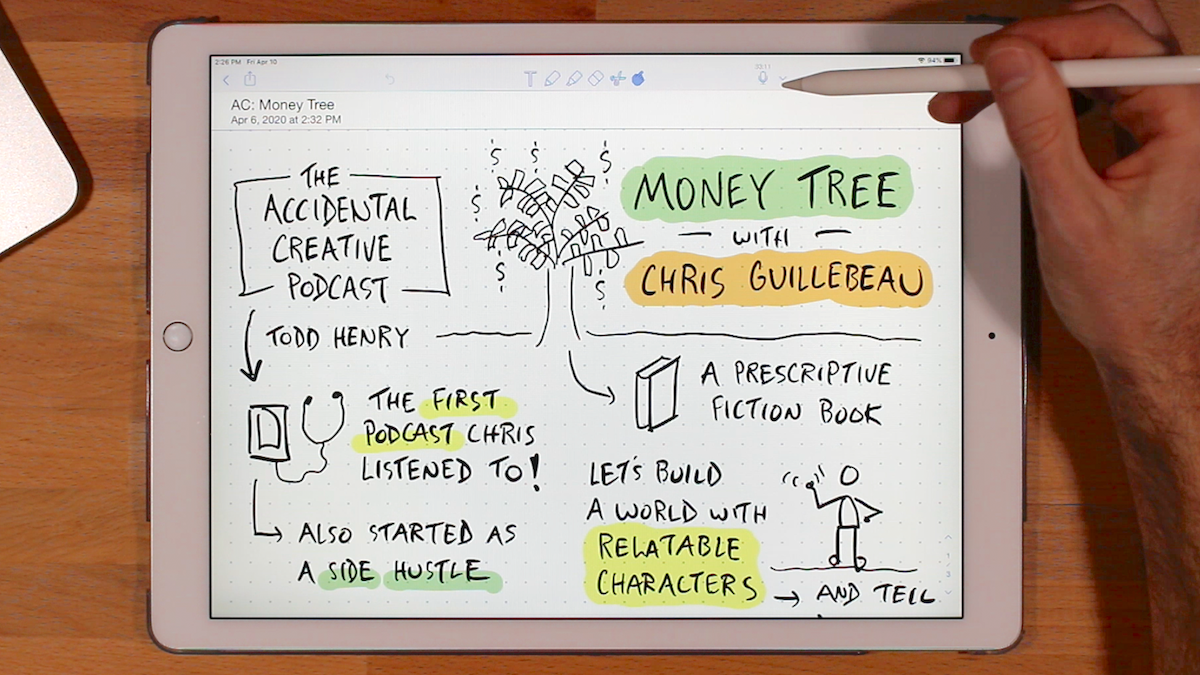 2:26 PM Fri Apr 10
94%
33:11
T
AC: Money Tree
Apr 6, 2020 at 2:32 PM
THE
ACCIDENTAL
CREATIVE
PODCAST
TODD HENRY
$ $ $ $ $ $ $
MONEY TREE
— WITH —
CHRIS GUILLEBEAU
A PRESCRIPTIVE
FICTION BOOK
THE FIRST
PODCAST CHRIS
LISTENED TO!
ALSO STARTED AS
A SIDE HUSTLE
LET'S BUILD
A WORLD WITH
RELATABLE
CHARACTERS
→ AND TELL
1
3